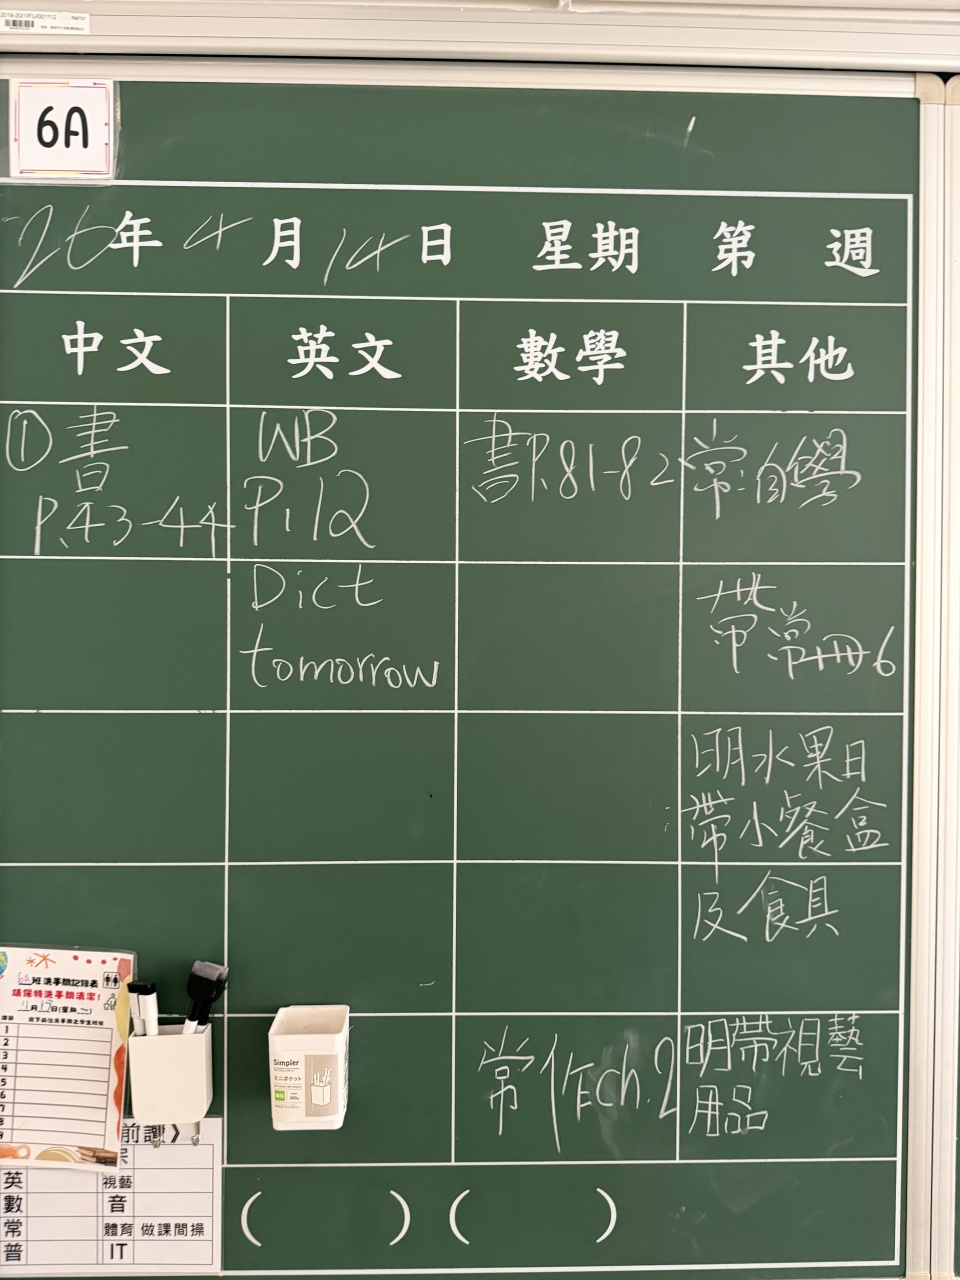 2019-20/1/FU/001112
6A
26年4月14日 星期 第 週
中文 英文 數學 其他
①書
P.43-44
WB
P.12
書P.81-82
常:自學
Dict
tomorrow
帶常冊6
明水果日
帶小餐盒
及食具
常作ch.2
明帶視藝
用品
6A班洗手間記錄表
請保持洗手間清潔!
1
2
3
4
5
6
7
8
Simpler
ミニポケット
前訓》
英 視藝
數 音
常 體育 做課間操
普 IT
( ) ( )